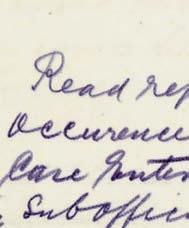 Read rep
Occurence
Care Enter
Suboffic